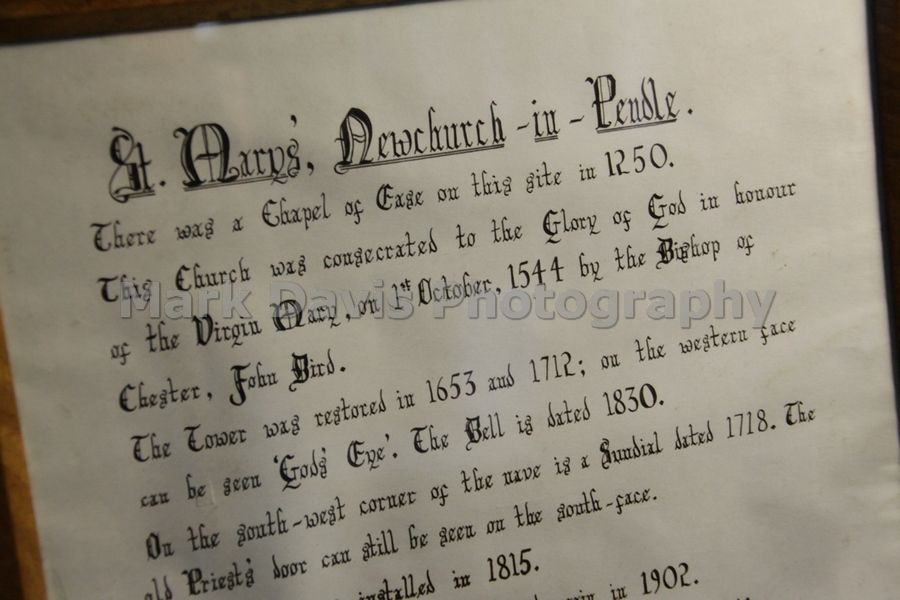 St. Mary's, Newchurch-in-Pendle.
There was a Chapel of Ease on this site in 1250.
This Church was consecrated to the Glory of God in honour
of the Virgin Mary, on 1st October, 1544 by the Bishop of
Mark Davis Photography
Chester, John Bird.
The Tower was restored in 1653 and 1712; on the western face
can be seen 'God's Eye'. The Bell is dated 1830.
On the south-west corner of the nave is a Sundial dated 1718. The
old Priest's door can still be seen on the south-face.
installed in 1815.
in 1902.